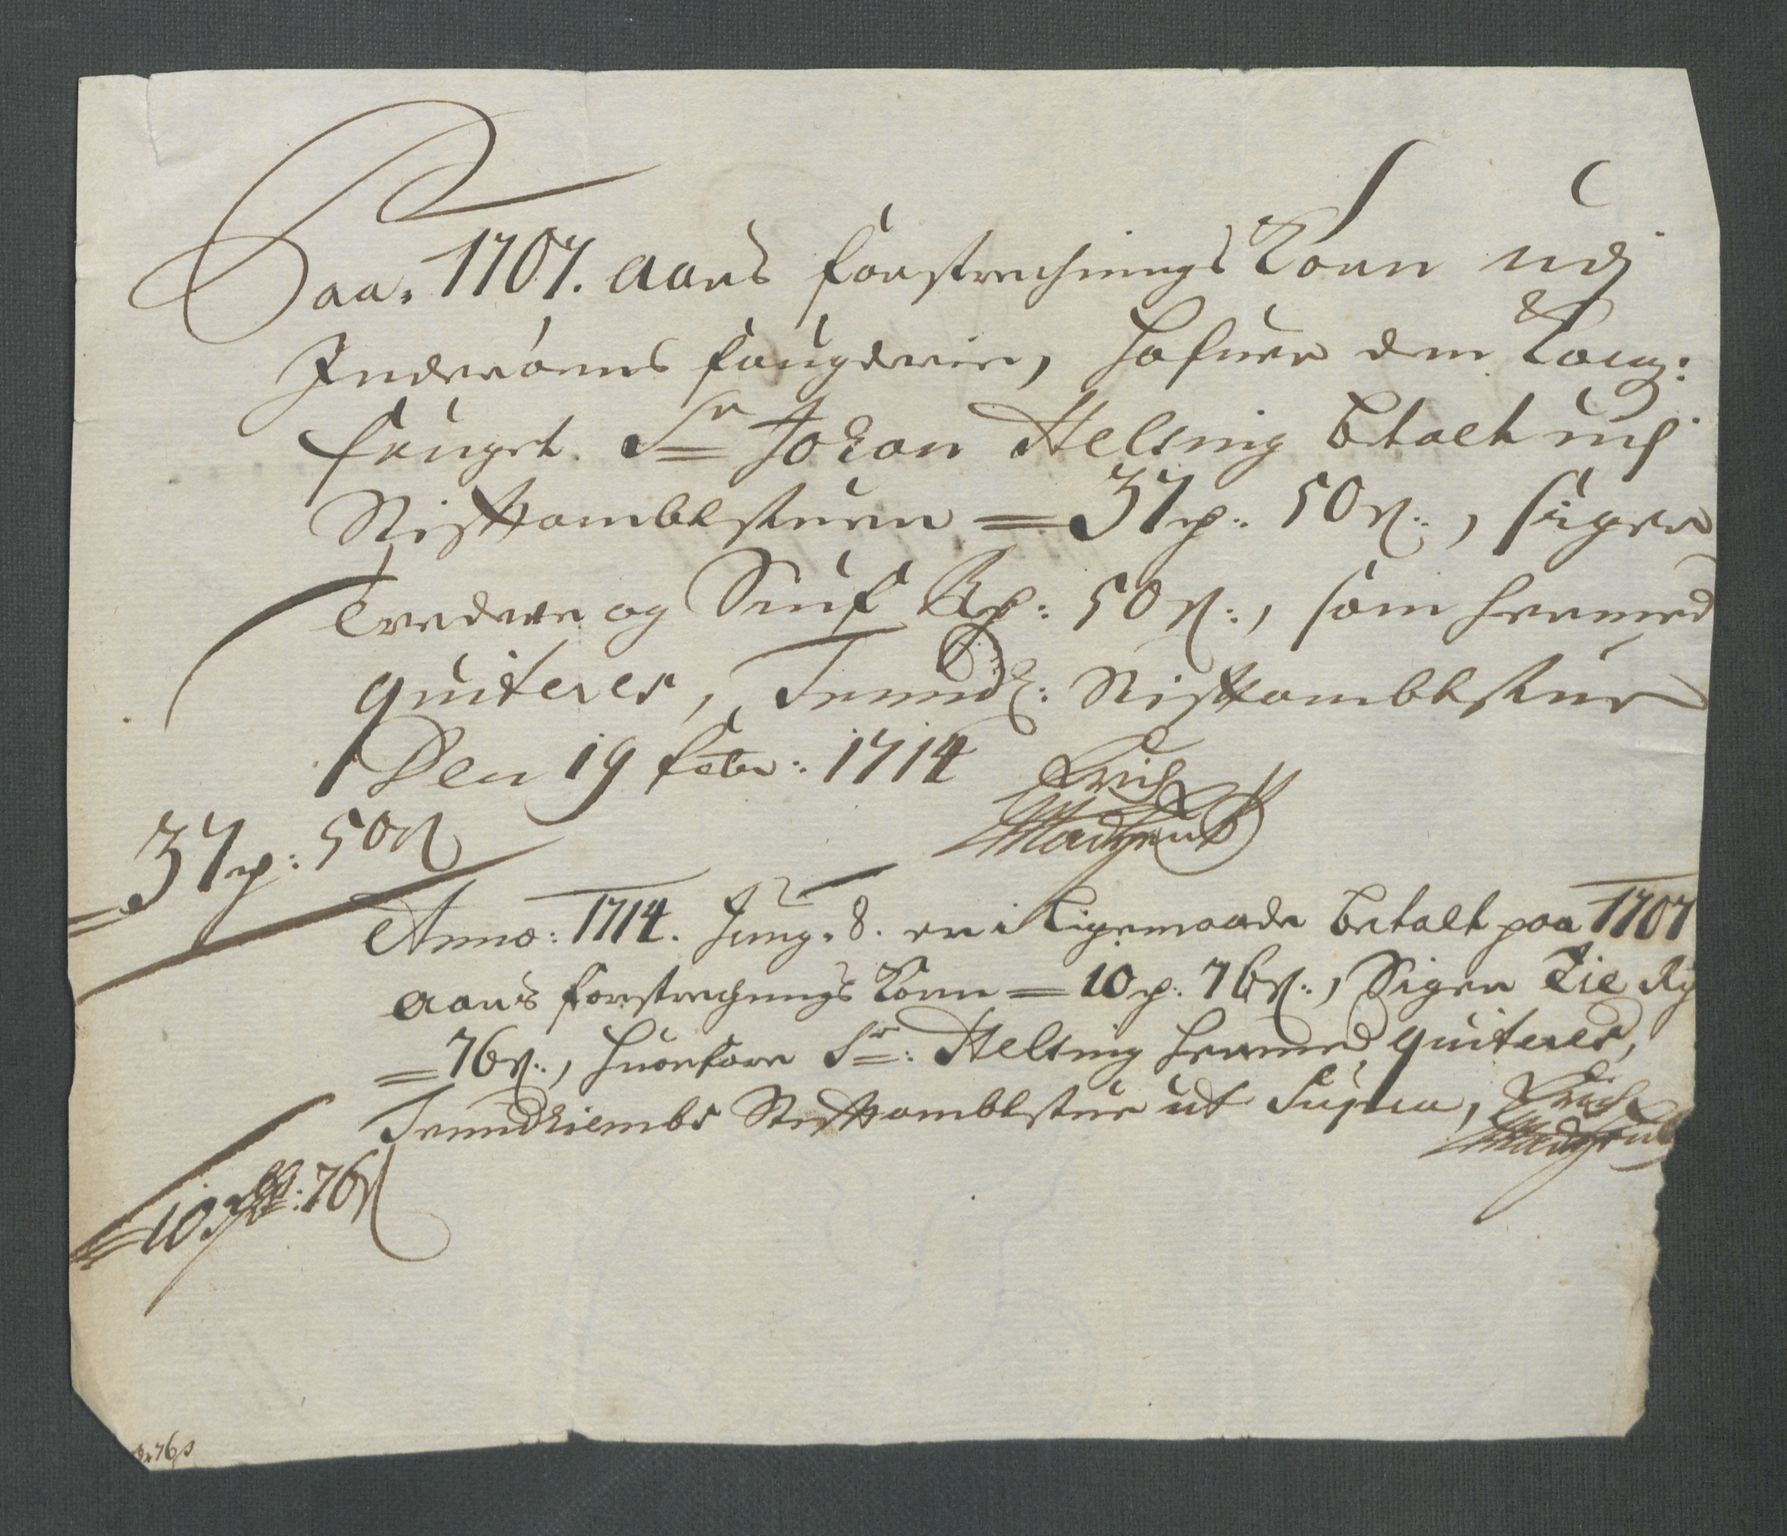 Paa. 1707. aars forstrechnings Korn udj
Inderöens fougderie, hafuer den Kong:
fouget. Sr Johan Helsing betalt udj
Stiftamblstuen = 37 rd: 50 s:, siger
Tredeve og Siuf Rd: 50 s:, som hermed
quiteres, Trundh: Stiftamblstue
Den 19 febr: 1714 Erich
Madsen
37 rd: 50 s
Anno: 1714. Junij. 8. er i ligemaade betalt paa 1707
aars forstrechnings Korn = 10 rd: 76 s:, Siger Tie Rd
= 76 s:, huorfore Sr: Helsing hermed quiteres,
Trundhiembs Stiftamblstue ut Supra, Erich
Madsen
10 rd: 76 s
76 s